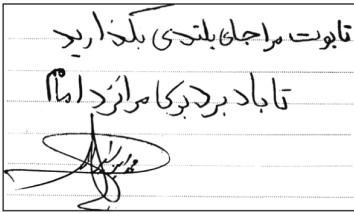 تابوت مرا جای بلندی بگذارید
تا باد برد بوی مرا نزد امام